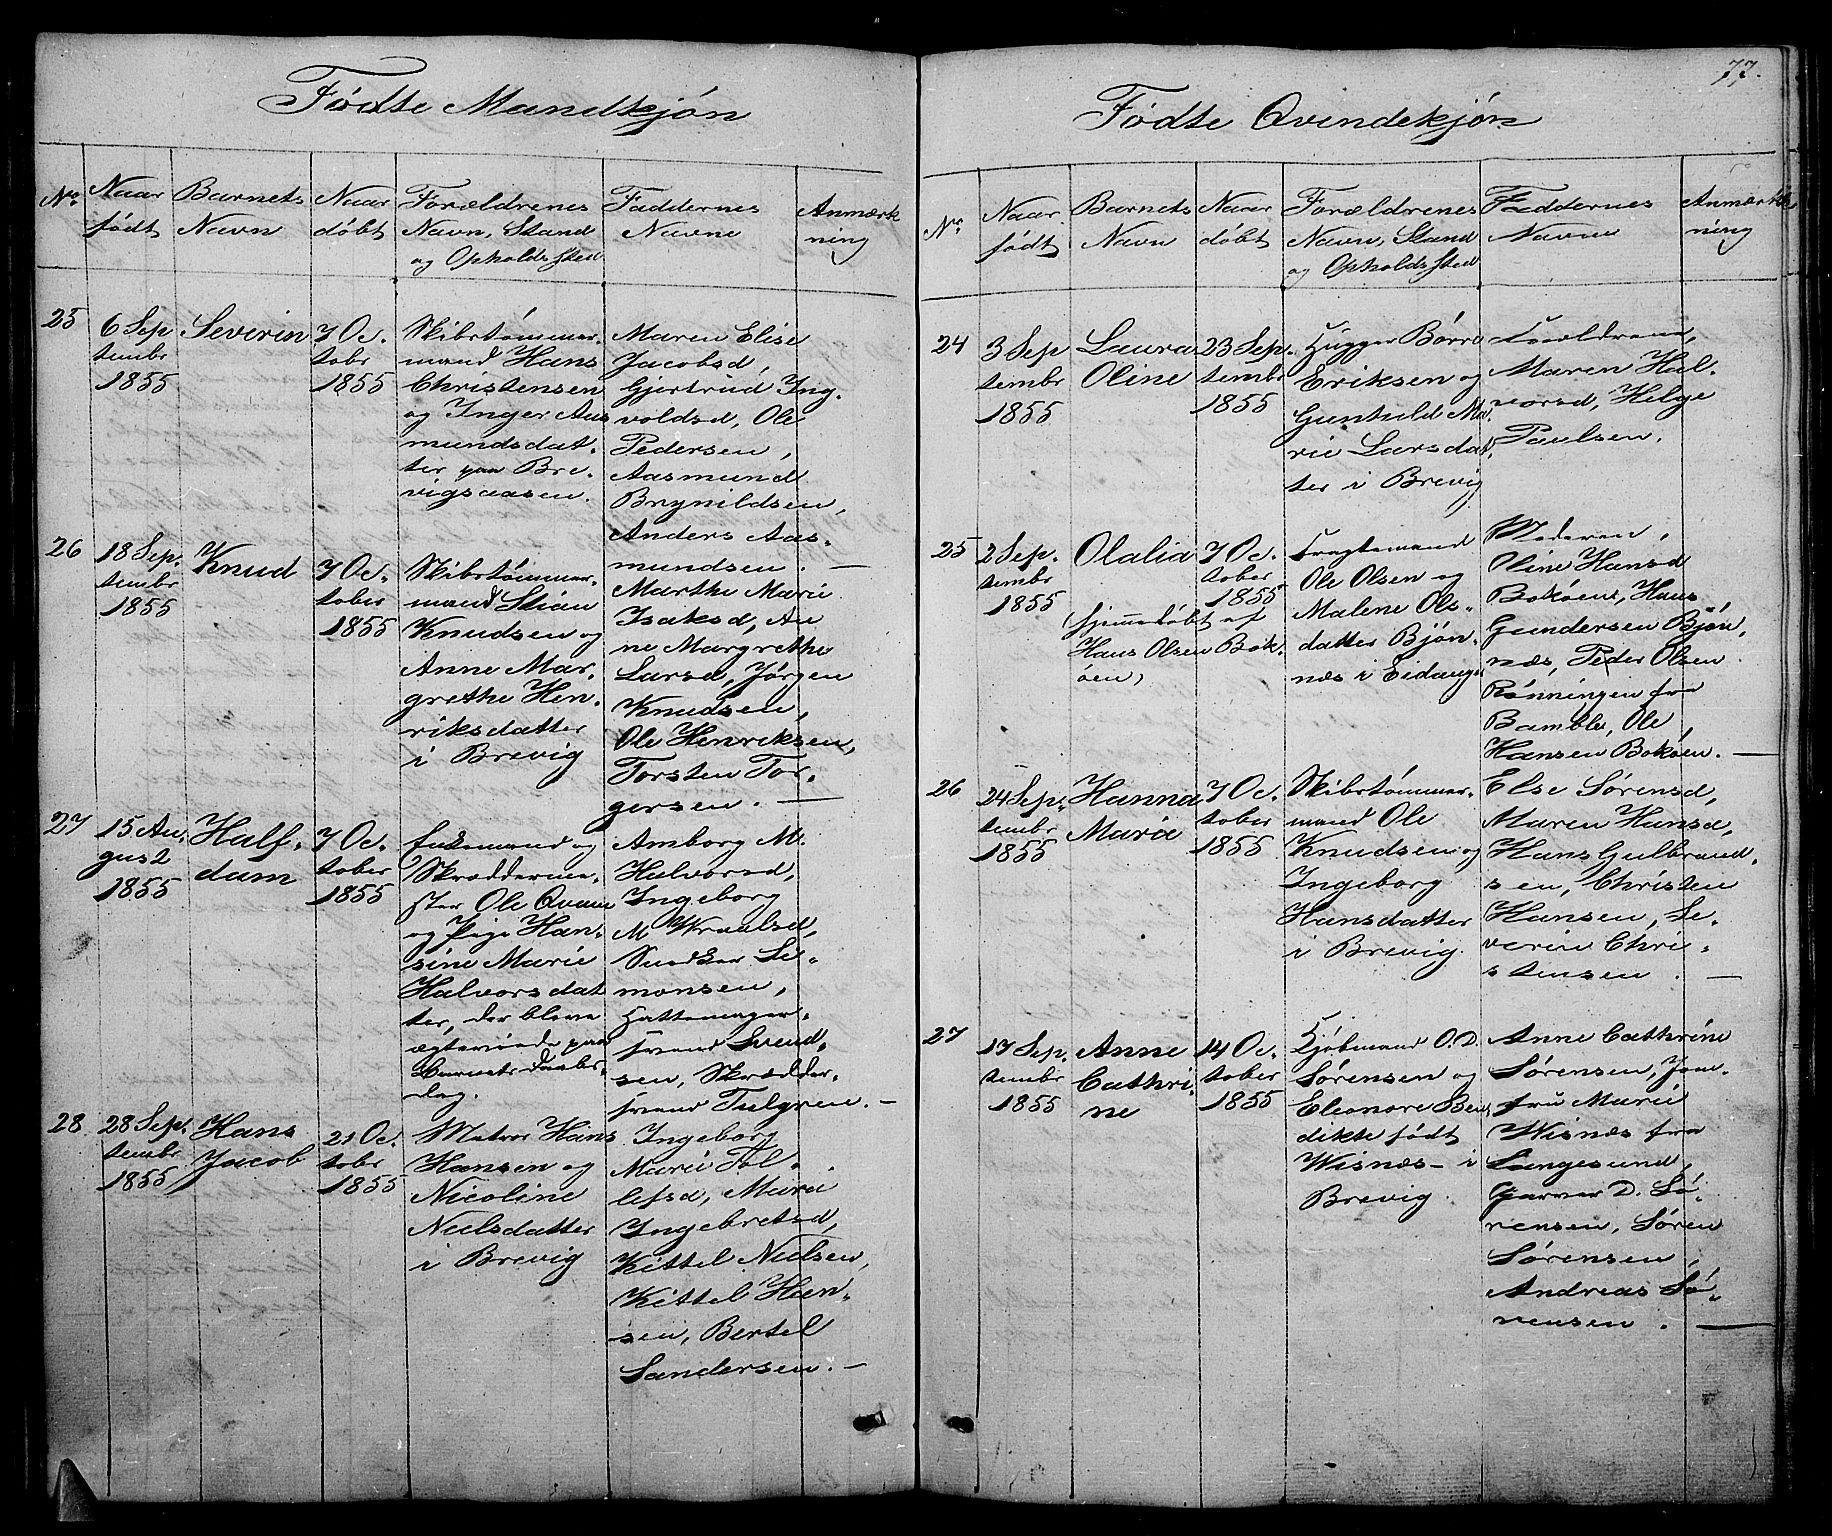 Fødte Mandkjøn
No.
Naar
født
Barnets
Navn
Naar
døbt
Forældrenes
Navn, Stand
og Opholdssted
Faddernes
Navne
Anmærk
ning
25
6 Sep
tembr
1855
Severin
7 Oc.
tobr
1855
Skibstømmer.
mand Hans
Christensen
og Inger Aas
mundsdat.
ter paa Bre
vigsaasen.
Maren Elise
Jacobsd,
Gjertrud Ing.
voldsd, Ole
Pedersen,
Aasmund
Brynildsen,
Anders Aas.
mundsen. —
26
18 Sep.
tembr
1855
Knud
7 Oc.
tober
1855
Skibstømmer.
mand Stian
Knudsen og
Anne Mar.
grethe Hen.
riksdatter
i Brevig
Marthe Marie
Isaksd, An
ne Margrethe
Larsd, Jørgen
Knudsen,
Ole Henriksen,
Torsten Tor.
gersen. —
27
15 Au.
gust
1855
Half.
dam
7 Oc.
tober
1855
Enkemand og
Skrædderme.
ster Ole Qvam
og Pige Han.
sine Marie
Halvorsdat
ter, der bleve
ægteviede paa
Barnets Daabs.
dag.
Amborg M.
Halvorsd,
Ingeborg
M Wraalsd,
Snedker Si.
monsen,
Hattemager.
svend Svend.
sen, Skrædder.
svend Tulgren. —
28
28 Sep.
tembr
1855
Hans
Jacob
21 Oc.
tobr
1855
Matros Hans
Hansen og
Nicoline
Nielsdatter
i Brevig
Ingeborg
Marie Tol.
lefsd, Maria
Ingebretsd,
Kittel Nielsen,
Kittel Han.
sen, Bertel
Sandersen. —
77.
Fødte Qvindekjøn
No.
Naar
født
Barnets
Navn
Naar
døbt
Forældrenes
Navn, Stand
og Opholdssted
Faddernes
Navne
Anmærk
ning
24
3 Sep
tembr
1855
Laura
Oline
23 Sep.
tembr
1855
Hugger Børre
Eriksen og
Gunhild Ma.
rie Larsdat.
ter i Brevig
Forældrene,
Maren Hal.
vorsd, Helge
Paulsen.
25
2 Sep.
tembr
1855
Olalia
(hjemmedøbt af
Hans Olsen Bok.
øen)
7 Oc.
tober
1855
Fragtemand
Ole Olsen og
Malene Ols.
datter Bjøn.
næs i Eidanger
Moderen,
Oline Hansd
Bokøen, Hans
Gundersen Bjøn,
næs, Peder Olsen
Rønningen fra
Bamble, Ole
Hansen Bokøen. —
26
24 Sep.
tembr
1855
Hanna
Marie
7 Oc.
tober
1855
Skibstømmer.
mand Ole
Knudsen og
Ingeborg
Hansdatter
i Brevig
Else Sørensd,
Maren Hansd,
Hans Gulbrand.
sen, Christen
Hansen, Se.
verin Chri.
stensen. —
27
17 Sep.
tembr
1855
Anne
Cathri.
ne
14 Oc.
tober
1855
Kjøbmand O. D.
Sørensen og
Eleonore Ben
dikte født
Wisnæs - i
Brevig.
Anne Cathrine
Sørensen, Jom.
fru Marie
Wisnæs fra
Langesund,
Garver D. Sø.
rensen, Søren
Sørensen,
Andreas Sø.
rensen. —